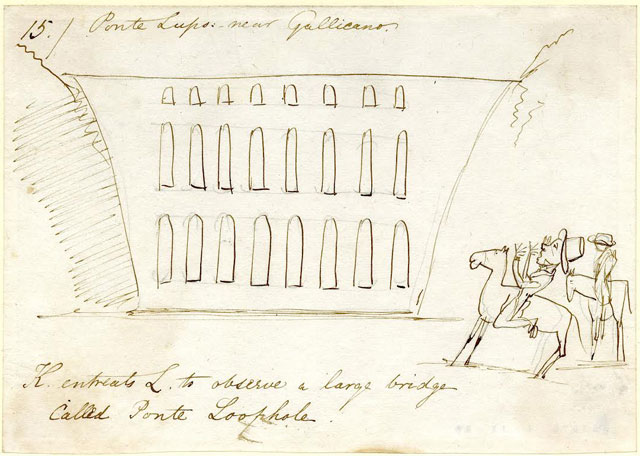 15. Ponte Lupo:- near Gallicano.
K. entreats L. to observe a large bridge
Called Ponte Loophole.